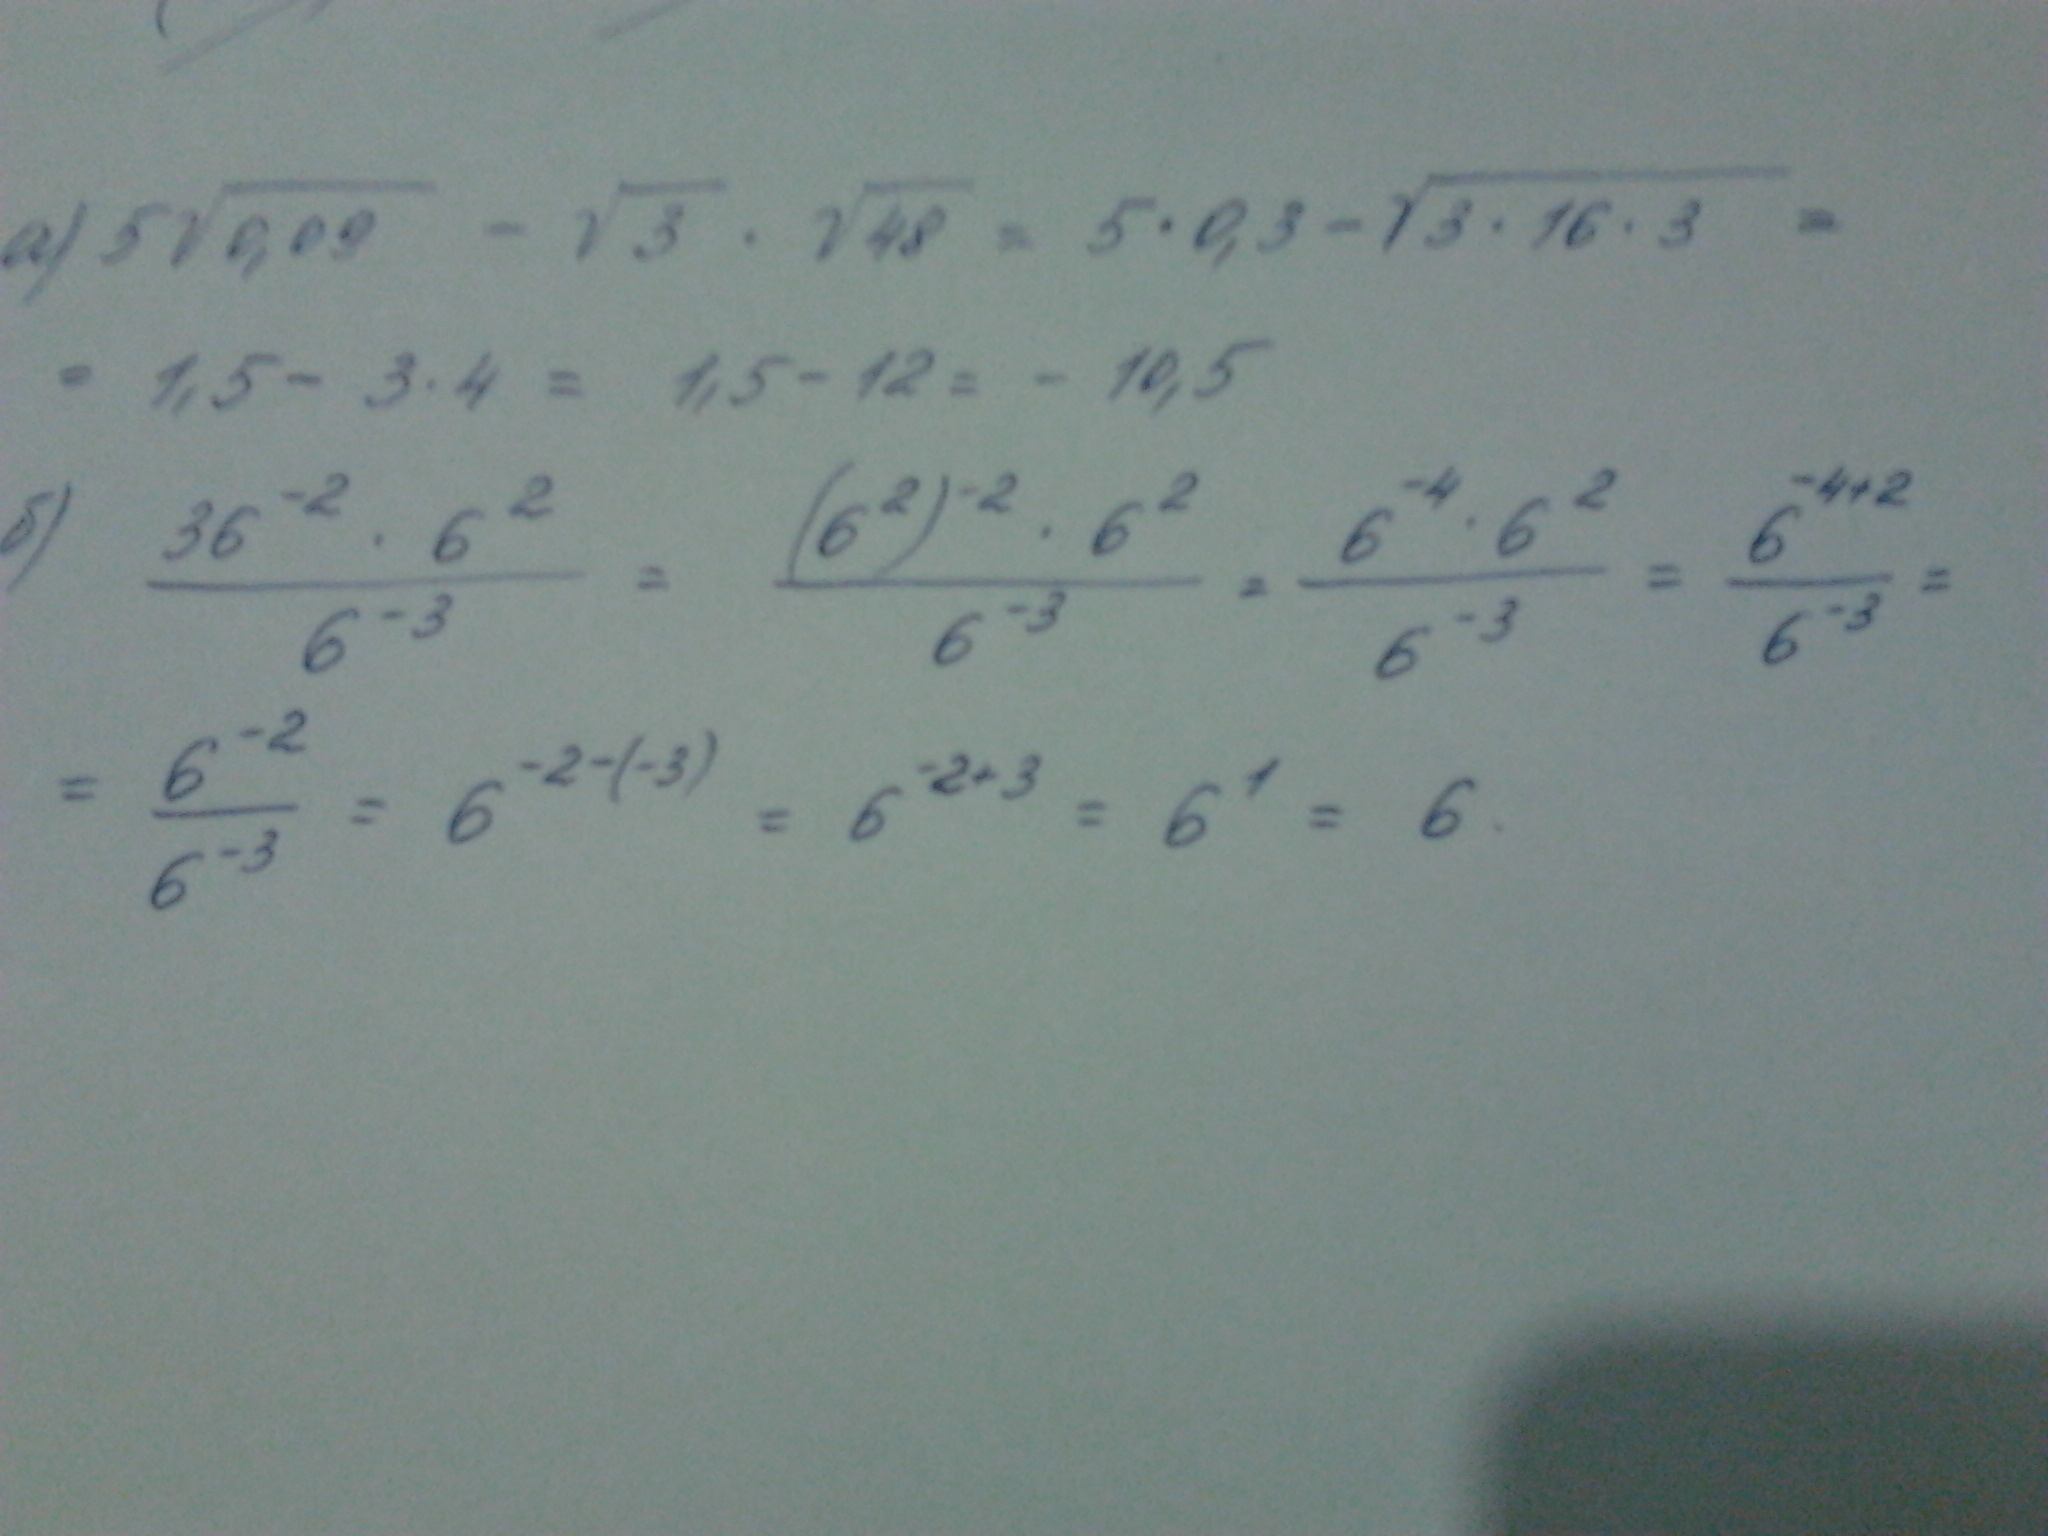 а) 5√0,09 - √3 · √48 = 5 · 0,3 - √3 · 16 · 3 =
= 1,5 - 3 · 4 = 1,5 - 12 = - 10,5
б) (36⁻² · 6²)/(6⁻³) = ((6²)⁻² · 6²)/(6⁻³) = (6⁻⁴ · 6²)/(6⁻³) = (6⁻⁴⁺²)/(6⁻³) =
= (6⁻²)/(6⁻³) = 6⁻²⁻⁽⁻³⁾ = 6⁻²⁺³ = 6¹ = 6.